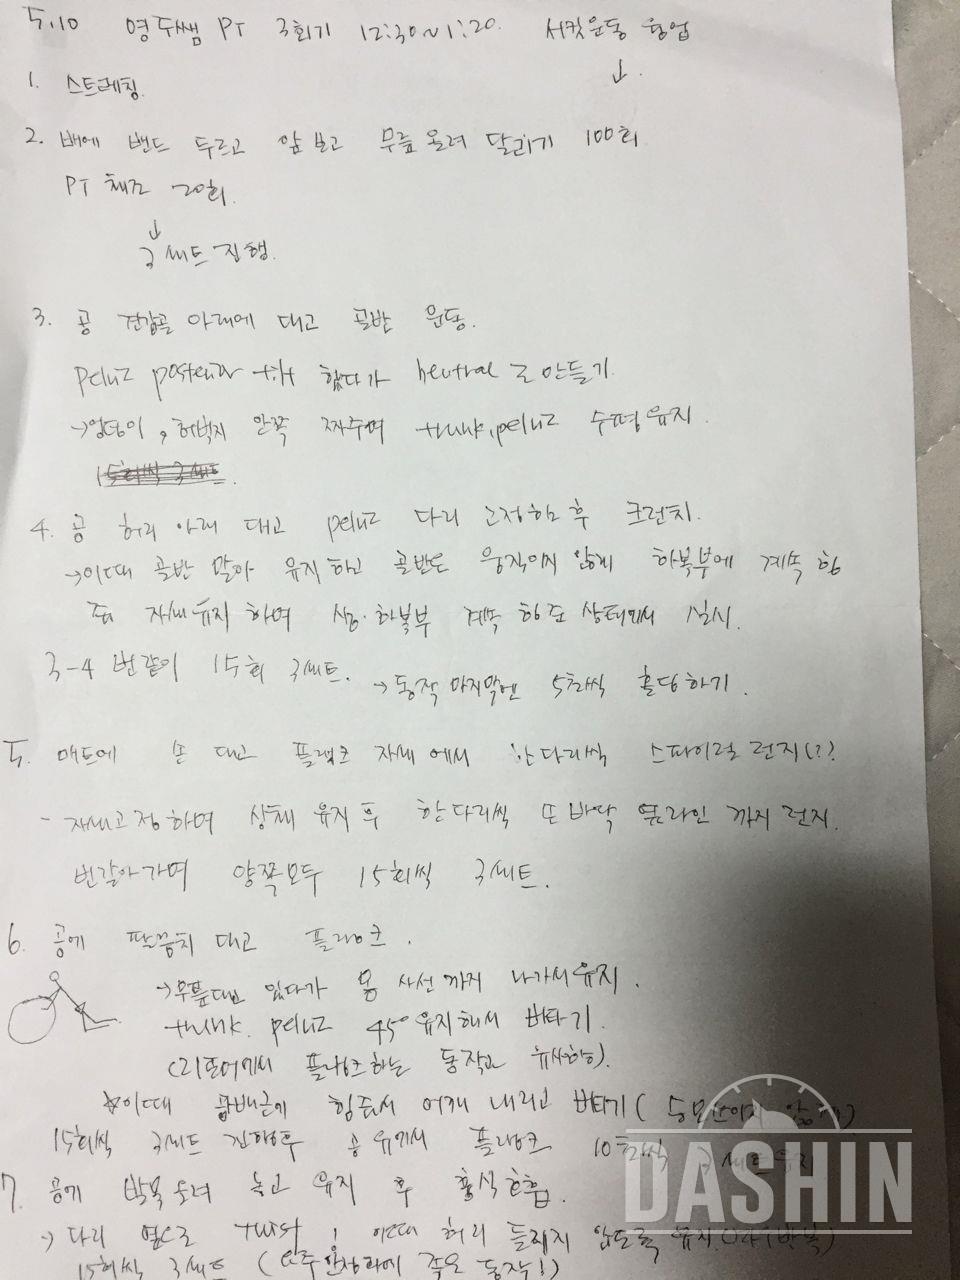 5.10 영두쌤 PT 3회기 12:30~1:20. 서킷운동 웜업
1. 스트레칭.
2. 배에 밴드 두르고 앞보고 무릎올려 달리기 100회
PT 체조 20회.
3세트 진행.
3. 공 견갑골 아래에 대고 골반 운동.
pelvic posterior tilt 했다가 neutral로 만들기.
→엉덩이, 허벅지 안쪽 짜주며 trunk, pelvic 수평유지.
15회씩 3세트.
4. 공 허리 아래 대고 pelvic 다리 고정한 후 크런치.
→이때 골반 말아 유지하고 골반은 움직이지 않게 하복부에 계속 힘
줘 자세유지하며 상·하복부 계속 힘준 상태에서 실시.
3-4번같이 15회 3세트. →동작 마지막엔 5초씩 홀딩하기.
5. 매트에 손 대고 플랭크 자세에서 한다리씩 스파이럴 런지(?)
- 자세고정하며 상체 유지 후 한다리씩 손바닥 옆라인까지 런지.
번갈아가며 양쪽모두 15회씩 3세트.
6. 공에 팔꿈치 대고 플랭크.
→무릎대고 있다가 몸 사선까지 나가서 유지.
trunk. pelvic 45°유지해서 버티기.
(리포머에서 플랭크하는 동작과 유사함).
☆이때 광배근에 힘줘서 어깨 내리고 버티기 (
15회씩 3세트 진행후 공 위에서 플랭크 10초씩 3세트유지
7. 공에 발목 올려 놓고 유지 후 흉식호흡.
→ 다리 옆으로 twist, 이때 허리 들리지 않도록 유지.
15회씩 3세트 (
DASHIN